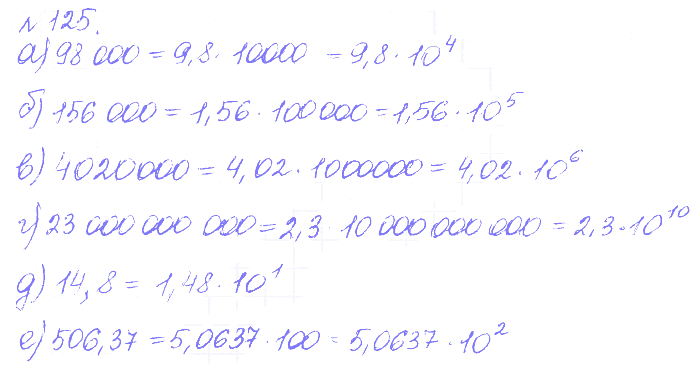 № 125.
а) 98 000 = 9,8 · 10000 = 9,8 · 10⁴
б) 156 000 = 1,56 · 100 000 = 1,56 · 10⁵
в) 4020000 = 4,02 · 1000000 = 4,02 · 10⁶
г) 23 000 000 000 = 2,3 · 10 000 000 000 = 2,3 · 10¹⁰
д) 14,8 = 1,48 · 10¹
е) 506,37 = 5,0637 · 100 = 5,0637 · 10²